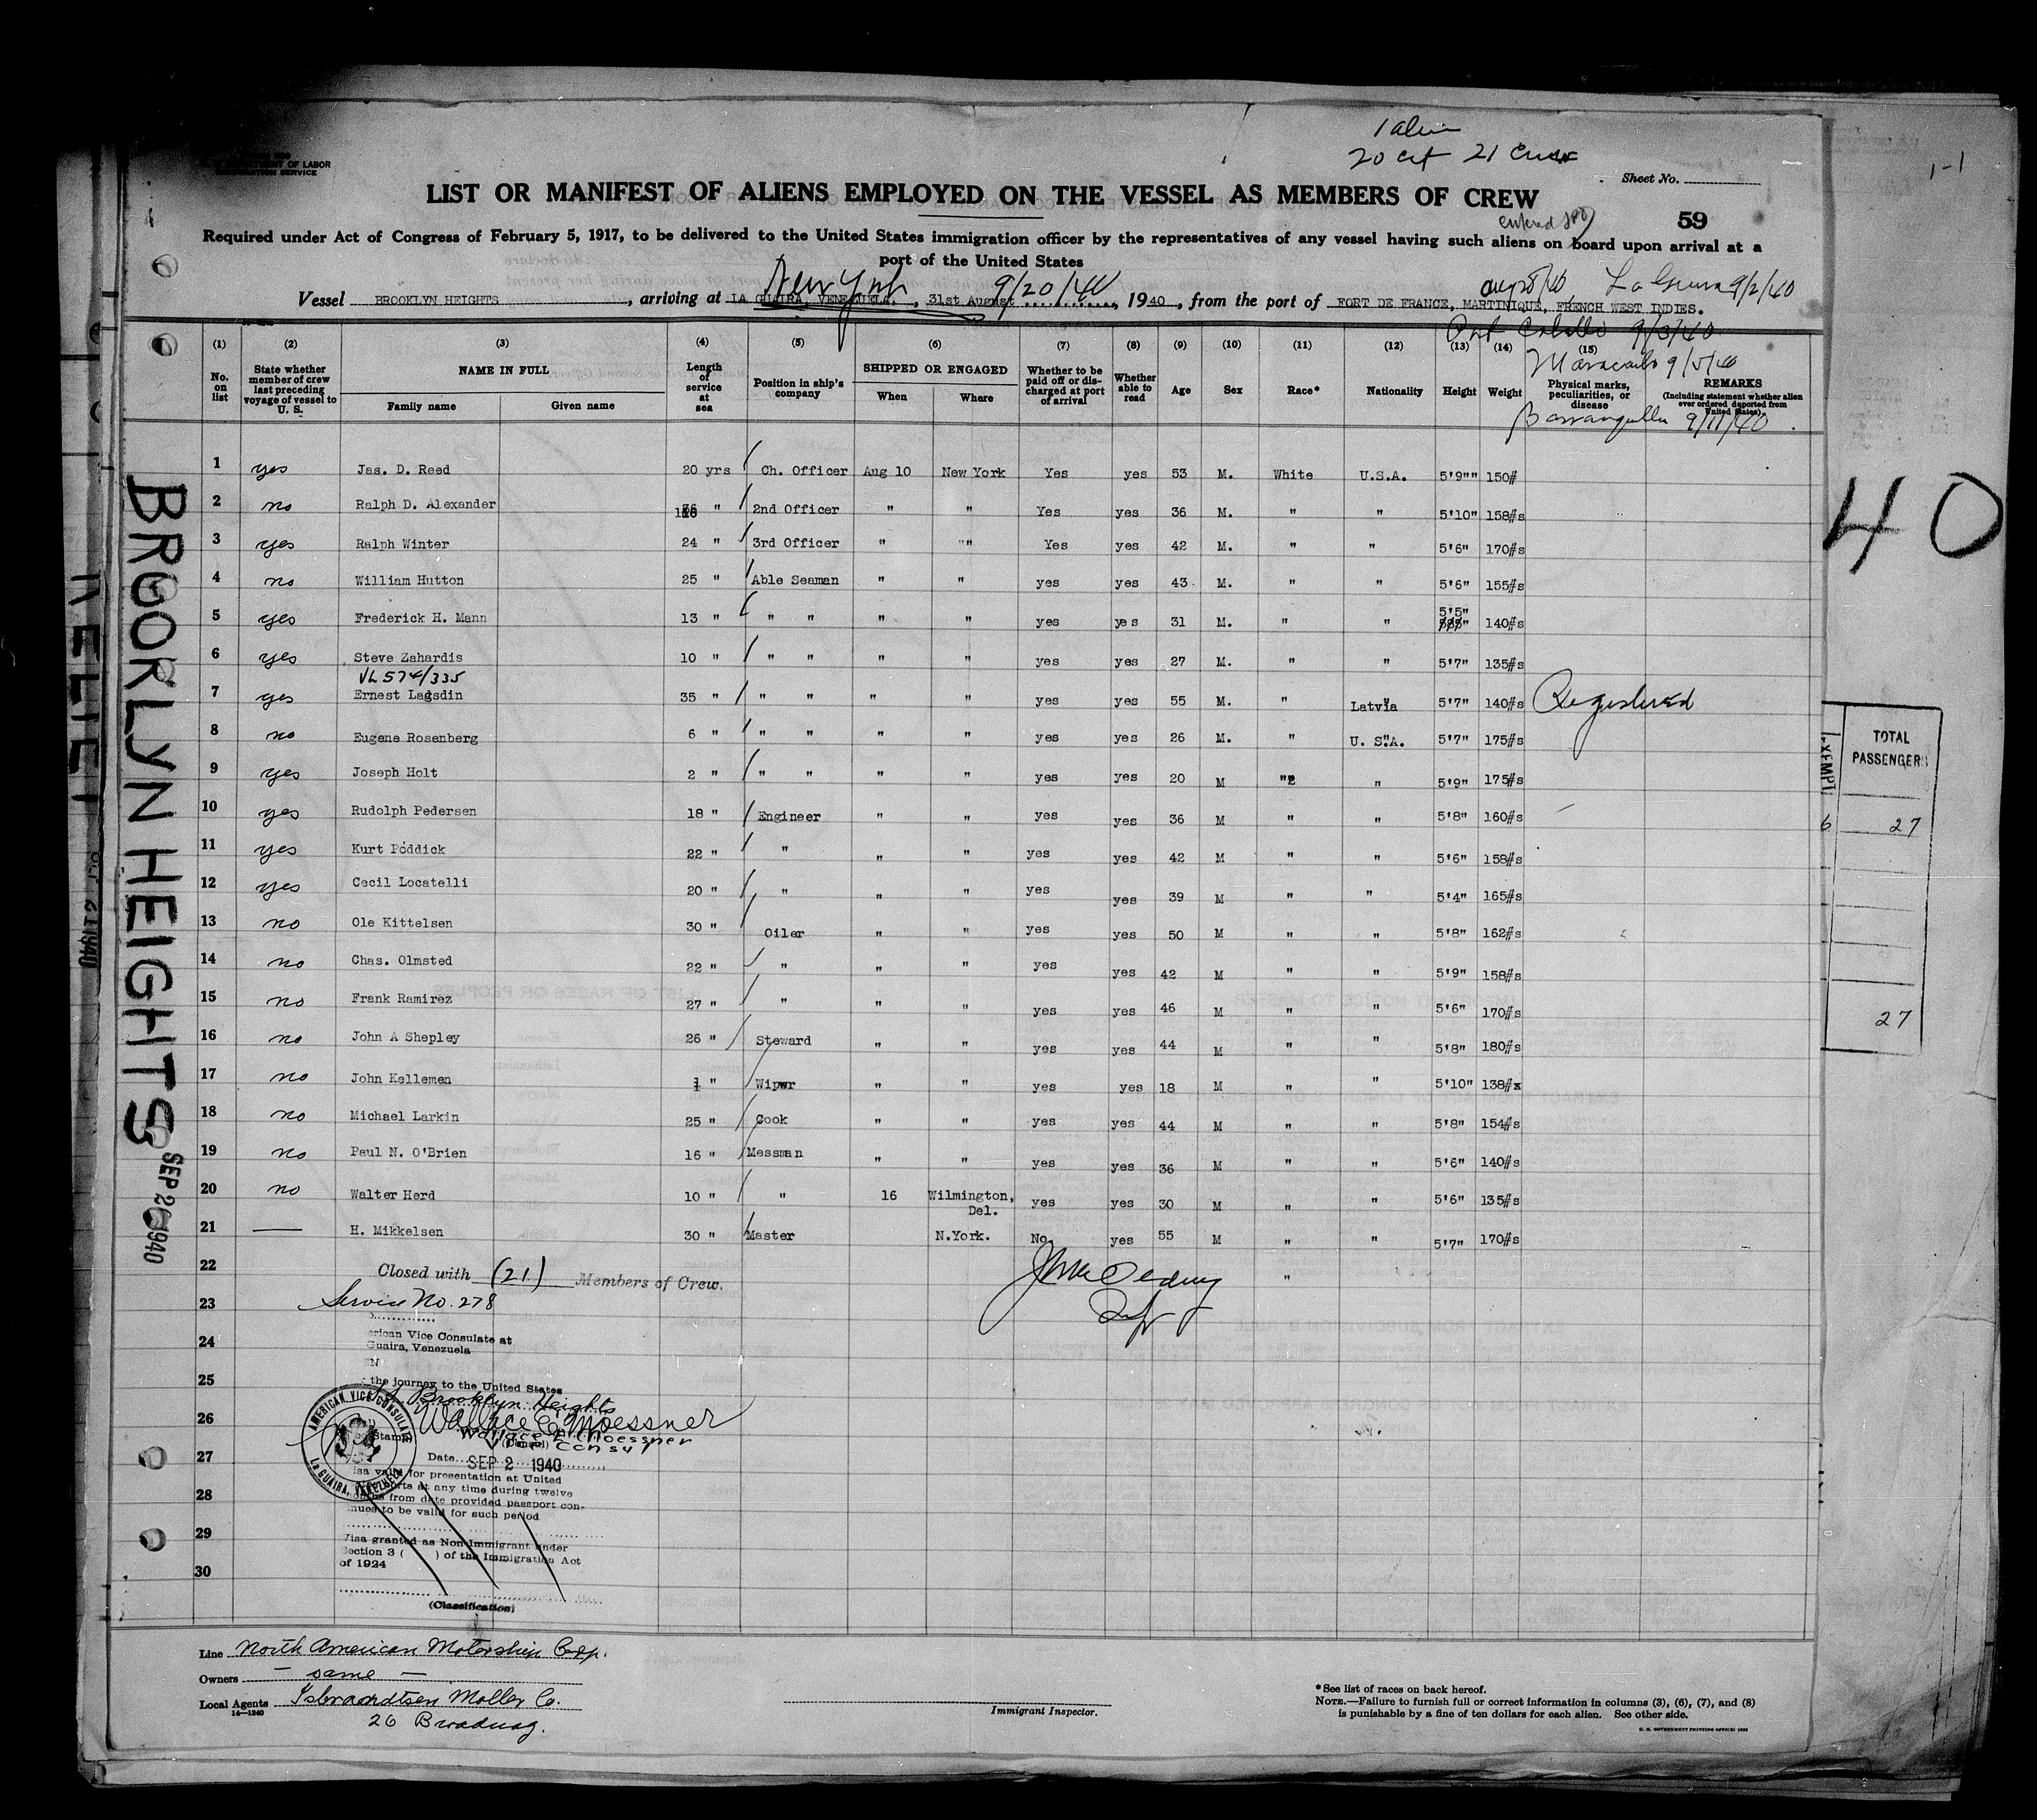 1 alien
20 cit 21 Crew
DEPARTMENT OF LABOR
IMMIGRATION SERVICE
Sheet No.
1-1
LIST OR MANIFEST OF ALIENS EMPLOYED ON THE VESSEL AS MEMBERS OF CREW
entered
59
Required under Act of Congress of February 5, 1917, to be delivered to the United States immigration officer by the representatives of any vessel having such aliens on board upon arrival at a
port of the United States
New York 9/20/40 La Guira 9/2/40
Vessel BROOKLYN HEIGHTS, arriving at LA GUAIRA, VENEZUELA., 31st August, 1940, from the port of FORT DE FRANCE, MARTINIQUE, FRENCH WEST INDIES.
Port Cabello 9/3/40
Maracaibo 9/5/40
Barranquilla 9/11/40
(1) (2) (3) (4) (5) (6) (7) (8) (9) (10) (11) (12) (13) (14) (15)
No. on list
State whether member of crew last preceding voyage of vessel to U. S.
NAME IN FULL
Family name Given name
Length of service at sea
Position in ship's company
SHIPPED OR ENGAGED
When Where
Whether to be paid off or discharged at port of arrival
Whether able to read
Age
Sex
Race*
Nationality
Height
Weight
Physical marks, peculiarities, or disease
REMARKS
(Including statement whether alien ever ordered deported from United States)
1 yes Jas. D. Reed 20 yrs Ch. Officer Aug 10 New York Yes yes 53 M. White U.S.A. 5'9"" 150#
2 no Ralph D. Alexander " 2nd Officer " " Yes yes 36 M. " " 5'10" 158#s
3 yes Ralph Winter 24 " 3rd Officer " "" Yes yes 42 M. " " 5'6" 170#s
4 no William Hutton 25 " Able Seaman " " yes yes 43 M. " " 5'6" 155#s
5 yes Frederick H. Mann 13 " " " " " yes yes 31 M. " " 5'5" 140#s
6 yes Steve Zahardis 10 " " " " " yes yes 27 M. " " 5'7" 135#s
VL 574/335
7 yes Ernest Lagsdin 35 " " " " " yes yes 55 M. " Latvia 5'7" 140#s Registered
8 no Eugene Rosenberg 6 " " " " " yes yes 26 M. " U. S.A. 5'7" 175#s
9 yes Joseph Holt 2 " " " " " yes yes 20 M " " 5'9" 175#s
10 yes Rudolph Pedersen 18 " Engineer " " yes yes 36 M " " 5'8" 160#s
11 yes Kurt Poddick 22 " " " " yes yes 42 M " " 5'6" 158#s
12 yes Cecil Locatelli 20 " " " " yes yes 39 M " " 5'4" 165#s
13 no Ole Kittelsen 30 " Oiler " " yes yes 50 M " " 5'8" 162#s
14 no Chas. Olmsted 22 " " " " yes yes 42 M " " 5'9" 158#s
15 no Frank Ramirez 27 " " " " yes yes 46 M " " 5'6" 170#s
16 no John A Shepley 26 " Steward " " yes yes 44 M " " 5'8" 180#s
17 no John Kellemen 1 " Wiper " " yes yes 18 M " " 5'10" 138#s
18 no Michael Larkin 25 " Cook " " yes yes 44 M " " 5'8" 154#s
19 no Paul N. O'Brien 16 " Messman " " yes yes 36 M " " 5'6" 140#s
20 no Walter Herd 10 " " 16 Wilmington, Del. yes yes 30 M " " 5'6" 135#s
21 — H. Mikkelsen 30 " Master N.York. No yes 55 M " " 5'7" 170#s
22 Closed with (21) Members of Crew. "
23 Service No. 278
24 erican Vice Consulate at
Guaira, Venezuela
EN
25 the journey to the United States
SS Brooklyn Heights
26 Wallace E. Moessner
Wallace E. Moessner
Vice Consul
(Consul)
27 Date SEP 2 1940
AMERICAN VICE CONSULATE
LA GUAIRA, VENEZUELA
isa valid for presentation at United
28 ports at any time during twelve
from date provided passport con-
nues to be valid for such period
29 Visa granted as Non-Immigrant under
Section 3 ( ) of the Immigration Act
of 1924
30
(Classification)
Line North American Motorship Corp.
Owners — same —
Local Agents Isbrandtsen Moller Co.
14—1240
26 Broadway.
Immigrant Inspector.
*See list of races on back hereof.
NOTE.—Failure to furnish full or correct information in columns (3), (6), (7), and (8)
is punishable by a fine of ten dollars for each alien. See other side.
U. S. GOVERNMENT PRINTING OFFICE
BROOKLYN HEIGHTS
SEP 20 1940
40
EXEMPT
TOTAL
PASSENGERS
6 27
27